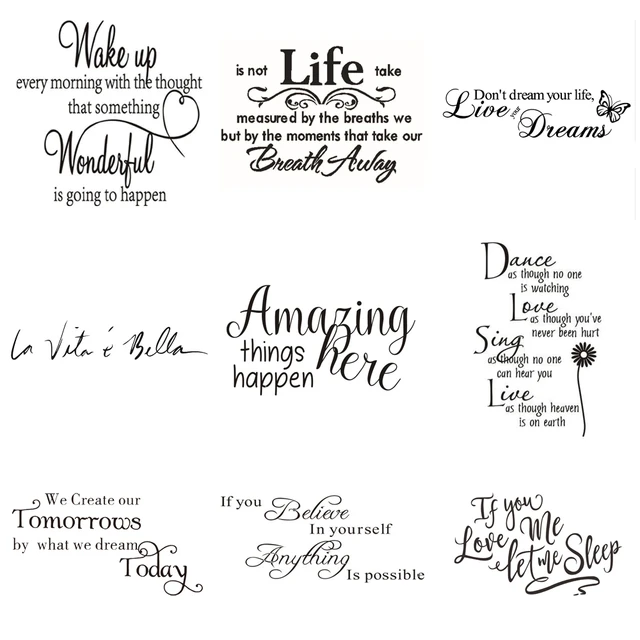 Wake up
every morning with the thought
that something
Wonderful
is going to happen
is not Life take
measured by the breaths we
but by the moments that take our
Breath Away
Don't dream your life,
Live your Dreams
La Vita é Bella
Amazing
things
happen here
Dance
as though no one
is watching
Love
as though you've
never been hurt
Sing
as though no one
can hear you
Live
as though heaven
is on earth
We Create our
Tomorrows
by what we dream
Today
If you Believe
In yourself
Anything
Is possible
If you
Love Me
let me Sleep